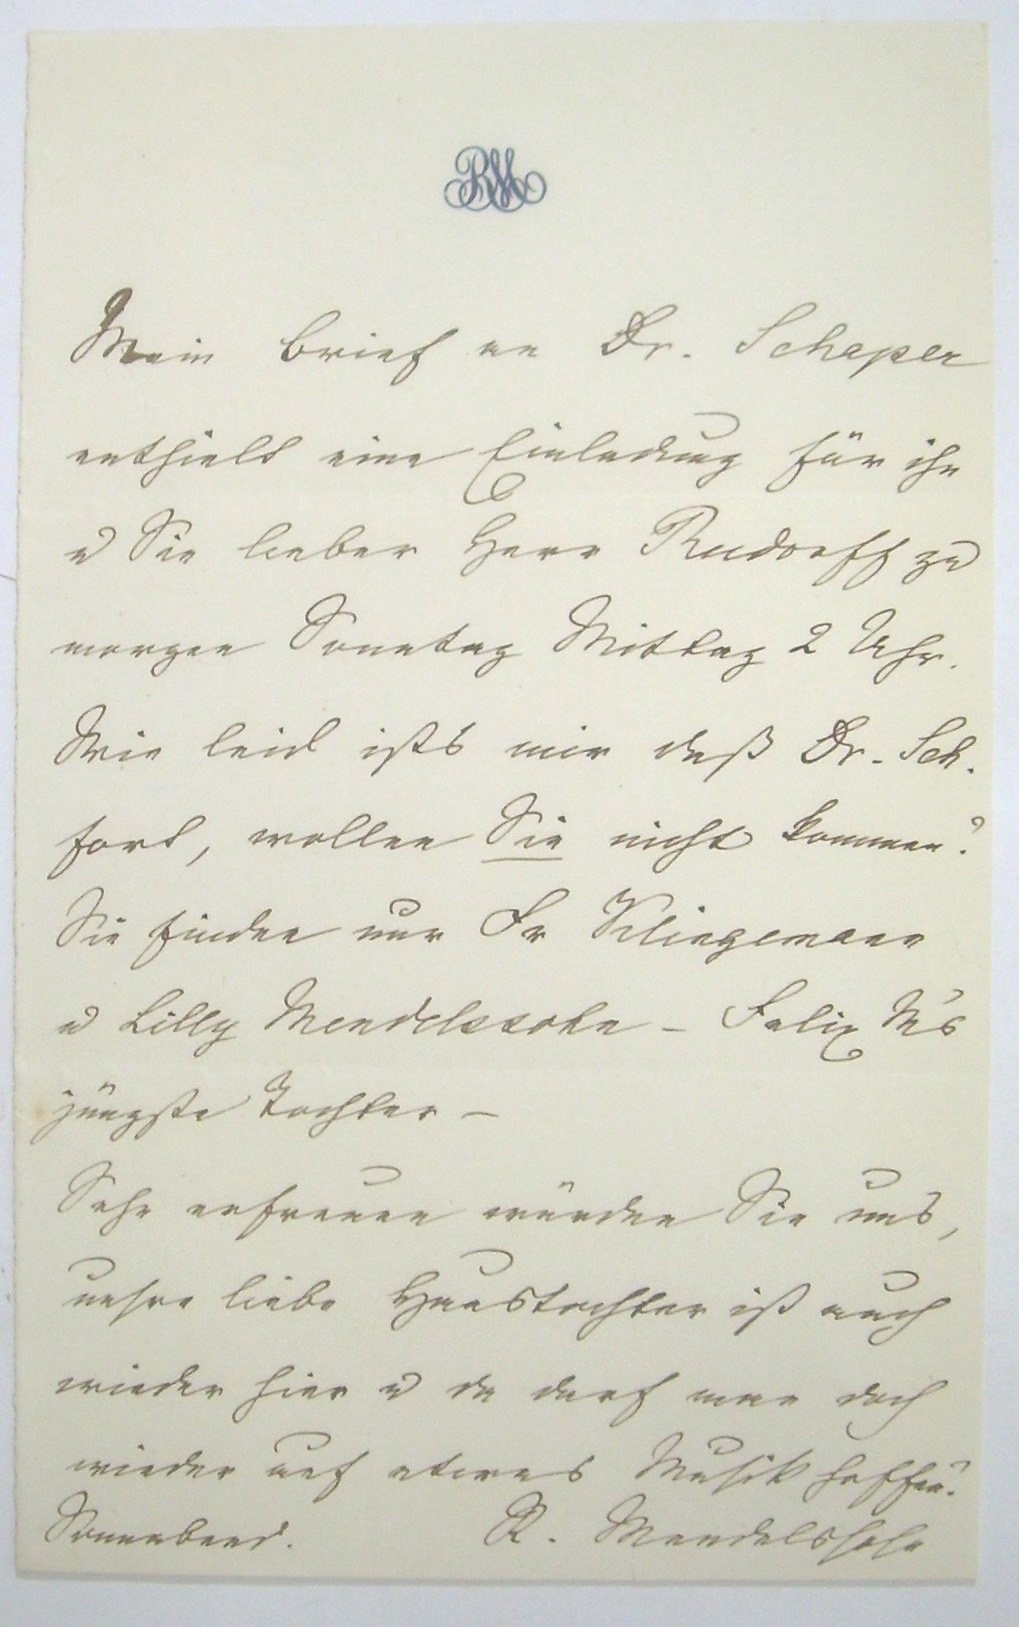 RM
Mein Brief an Dr. Schaper
enthielt eine Einladung für ihn
u Sie lieber Herr Rudorff zu
morgen Sonntag Mittag 2 Uhr.
Wie leid ists mir daß Dr. Sch.
fort, wollen Sie nicht kommen?
Sie finden nur Fr Klingemann
u Lilly Mendelssohn – Felix M's
jüngste Tochter –
Sehr erfreuen würden Sie uns,
unsre liebe Haustochter ist auch
wieder hier u da darf man doch
wieder auf etwas Musik hoffen?
Sonnabend. R. Mendelssohn